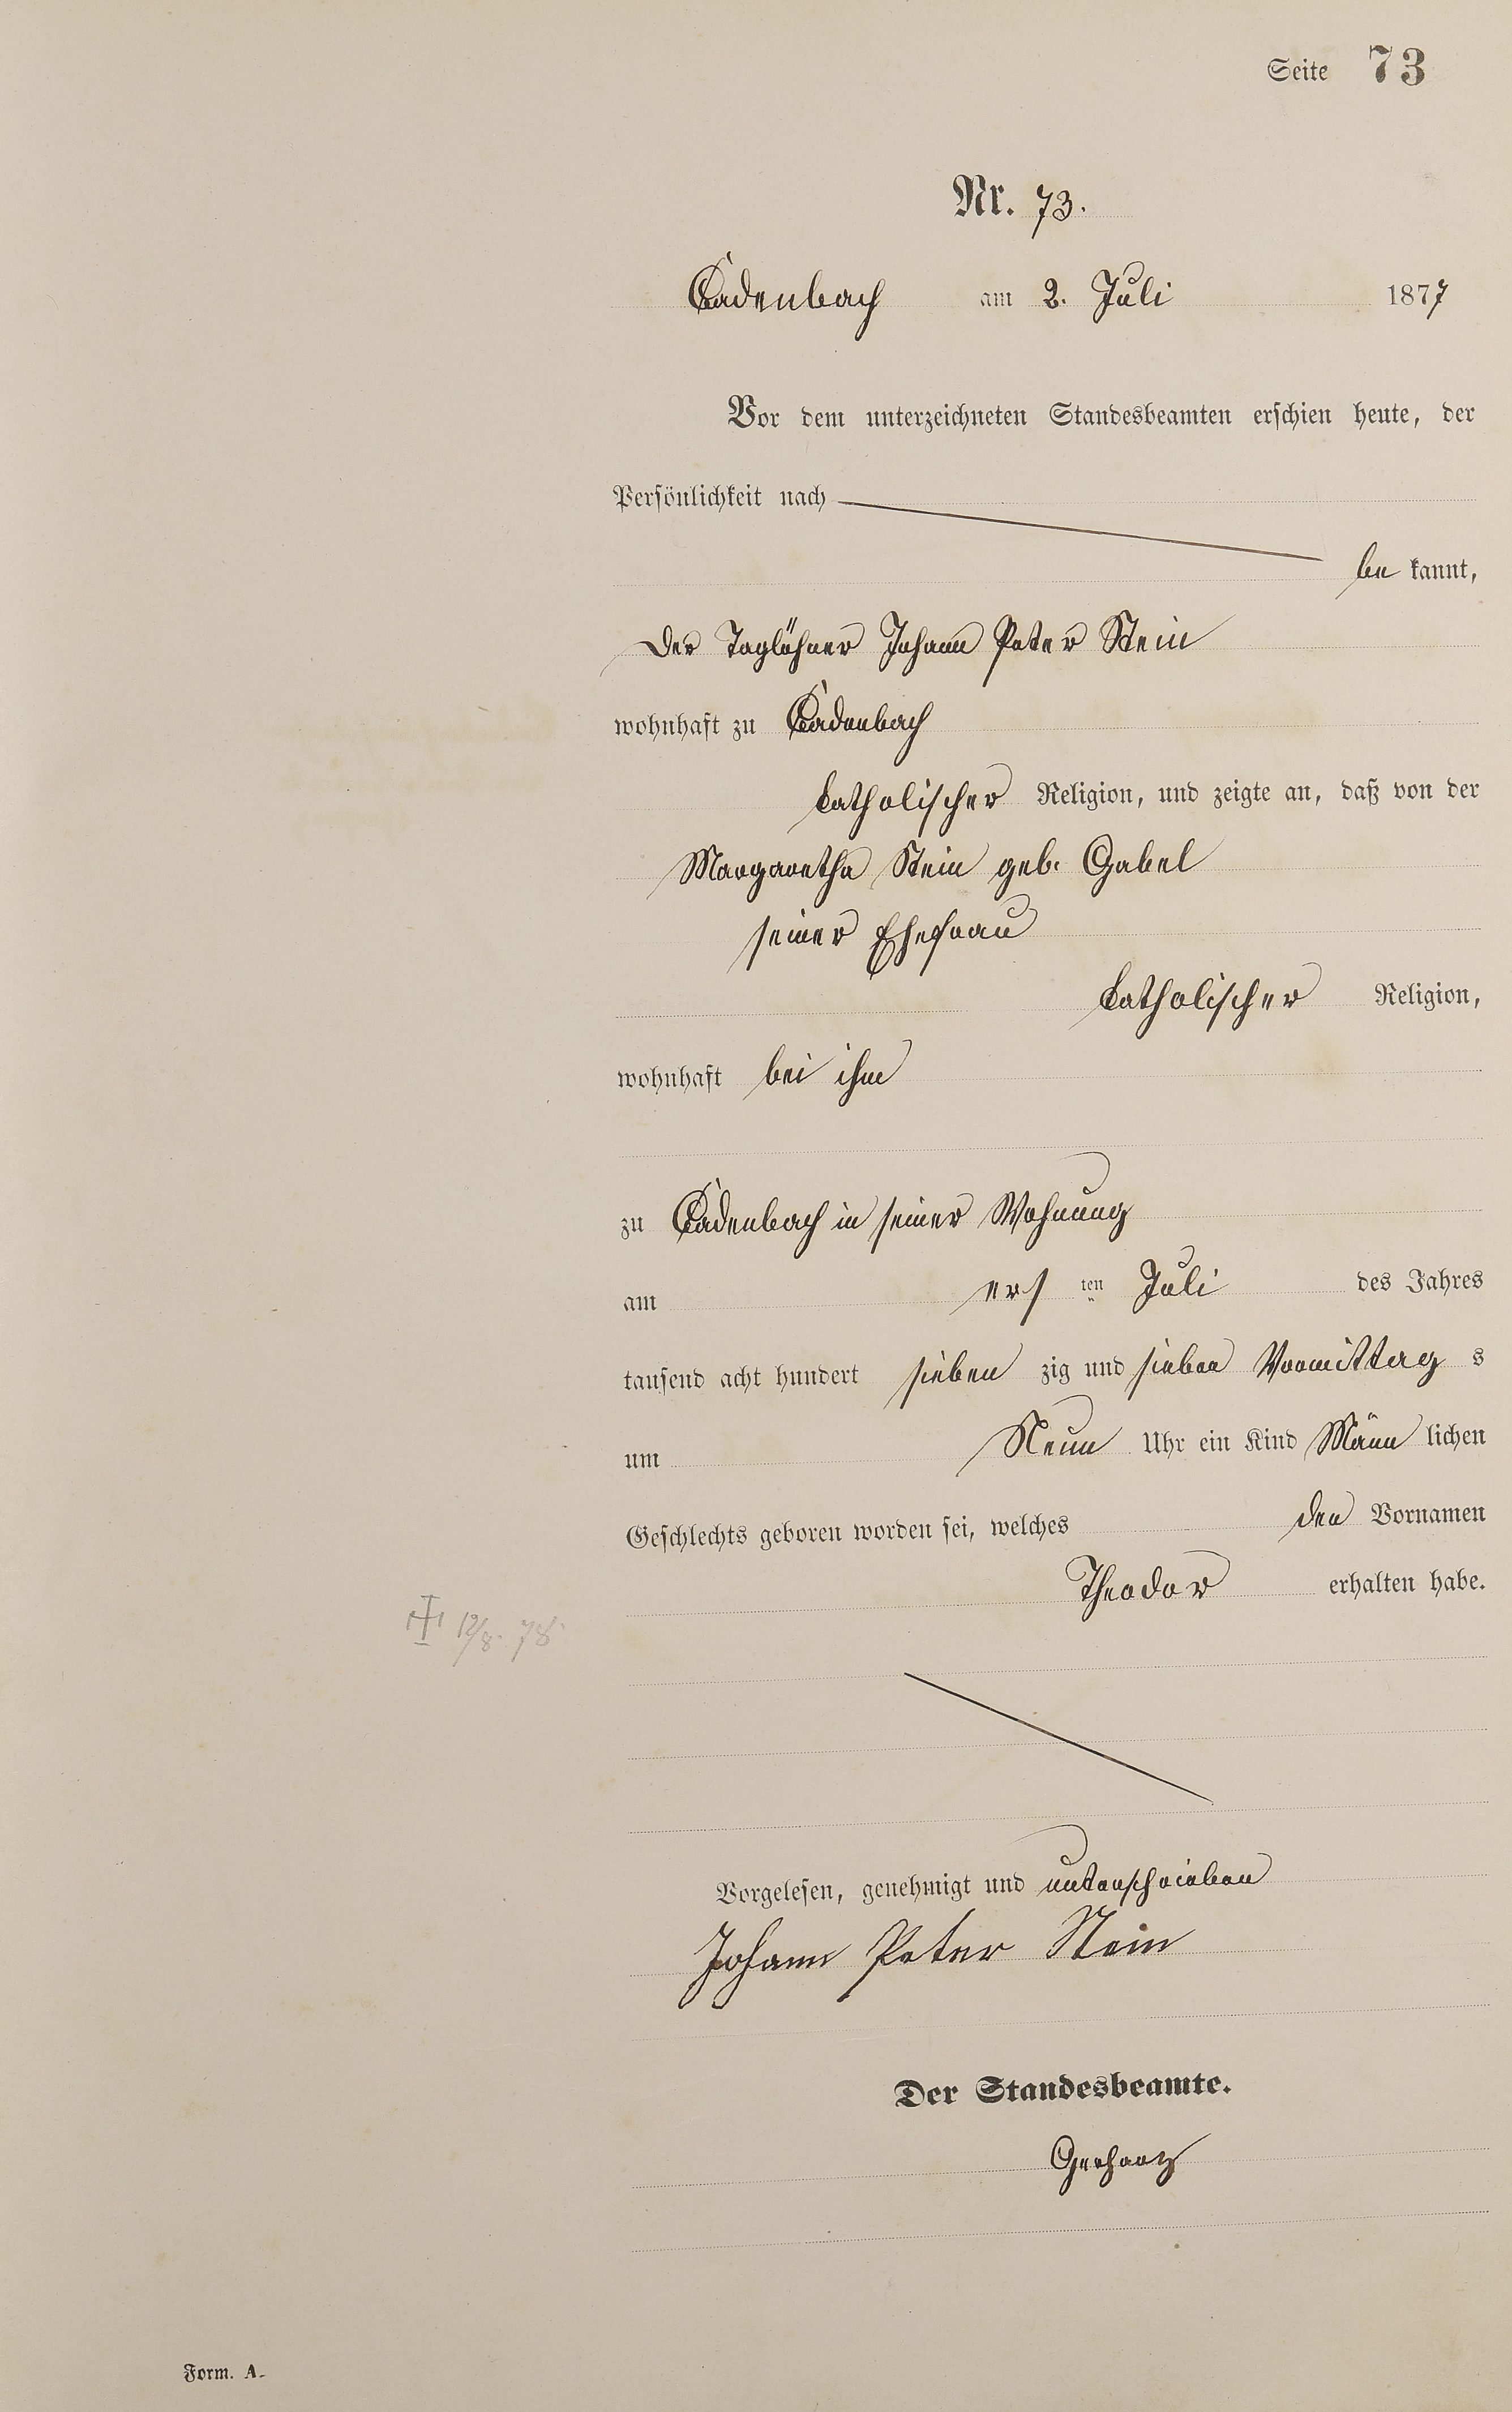 Seite 73
Nr. 73.
Cadenbach am 2. Juli 1877
Vor dem unterzeichneten Standesbeamten erschien heute, der
Persönlichkeit nach
be kannt,
der Taglöhner Johann Peter Stein
wohnhaft zu Cadenbach
katholischer Religion, und zeigte an, daß von der
Margaretha Stein geb. Gabel
seiner Ehefrau
katholischer Religion,
wohnhaft bei ihm
zu Cadenbach in seiner Wohnung
am ers ten Juli des Jahres
tausend acht hundert sieben zig und sieben Vormittag s
um Neun Uhr ein Kind Männ lichen
Geschlechts geboren worden sei, welches den Vornamen
Theodor erhalten habe.
† 12/8. 78
Vorgelesen, genehmigt und unterschrieben
Johann Peter Stein
Der Standesbeamte.
Gerharz
Form. A.